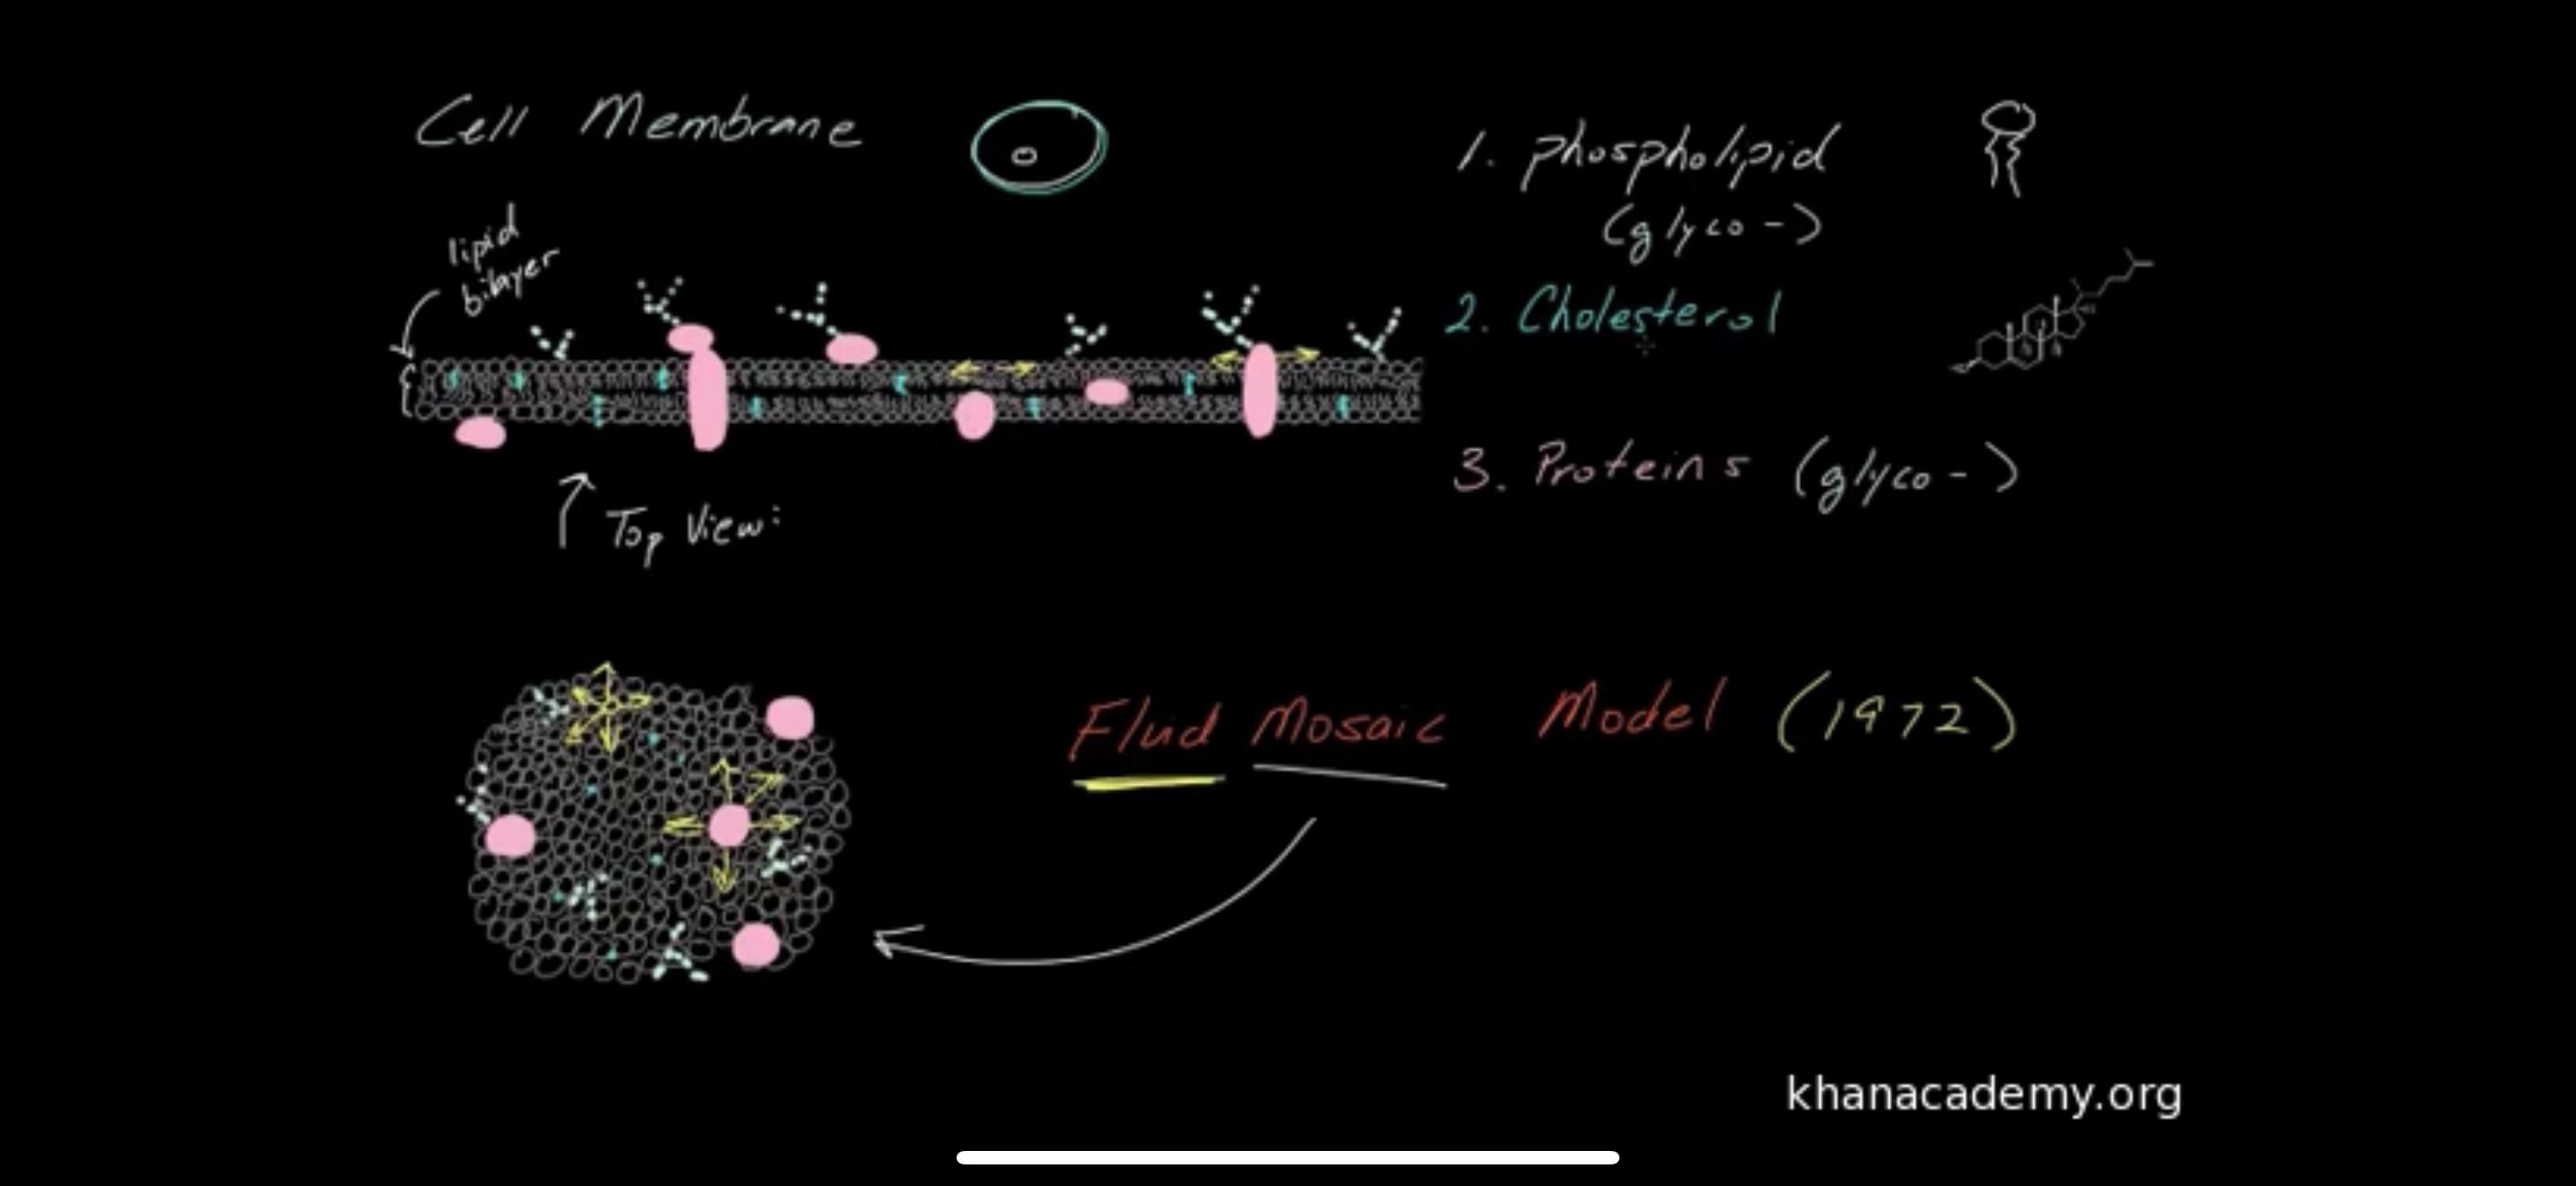 Cell Membrane
lipid
bilayer
Top View:
1. phospholipid
(glyco-)
2. Cholesterol
3. Proteins (glyco-)
Fluid Mosaic Model (1972)
khanacademy.org